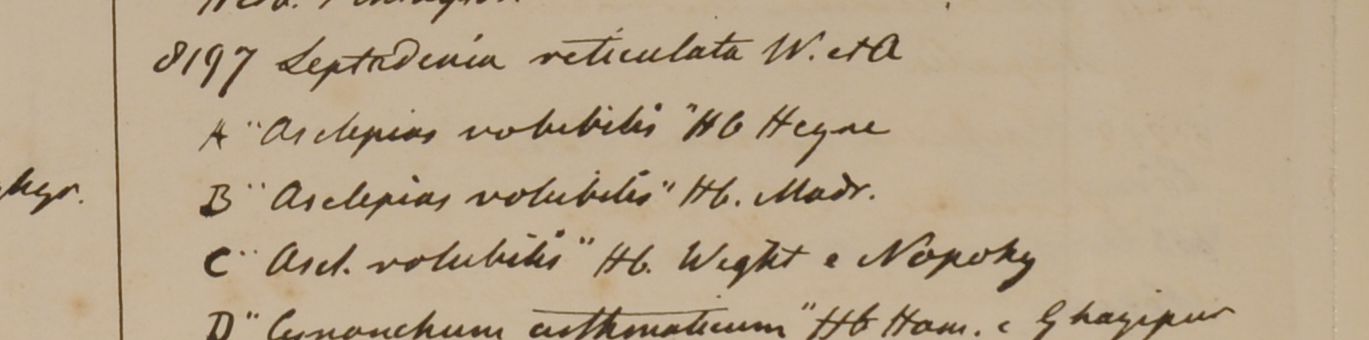 8197 Leptadenia reticulata W. et A
A "Asclepias volubilis" Hb Heyne
B "Asclepias volubilis" Hb. Madr.
C "Ascl. volubilis" Hb. Wight e Nopoky
D "Cynanchum asthmaticum" Hb Ham. e Ghazipur